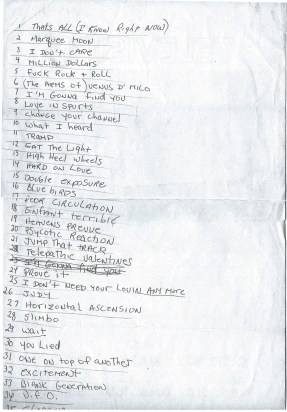 1 THATS ALL (I Know Right Now)
2 Marquee Moon
3 I Don't CARE
4 Million Dollars
5 Fuck Rock + Roll
6 (The ARMS of) VENUS D' MILO
7 I'M Gonna find you
8 Love in Spurts
9 change your channel
10 What I heard
11 TRAMP
12 EAT The Light
13 High Heel Wheels
14 HARD ON LOVE
15 Double Exposure
16 Bluebirds
17 POOR CIRCULATION
18 ENFANT Terrible
19 HEAVENS
20 PSycotic Reaction
21 JUMP That TRACK
22 Telepathic VALENTINES
23 I'M GONNA find you
24 PROVE IT
25 I DON'T NEED YOUR LOVIN ANY MORE
26 JUDY
27 Horizontal ASCENSION
28 Slimbo
29 Wait
30 you Lied
31 ONE ON top of another
32 EXCITEMENT
33 BlANK GENERATION
34 U.F.O.